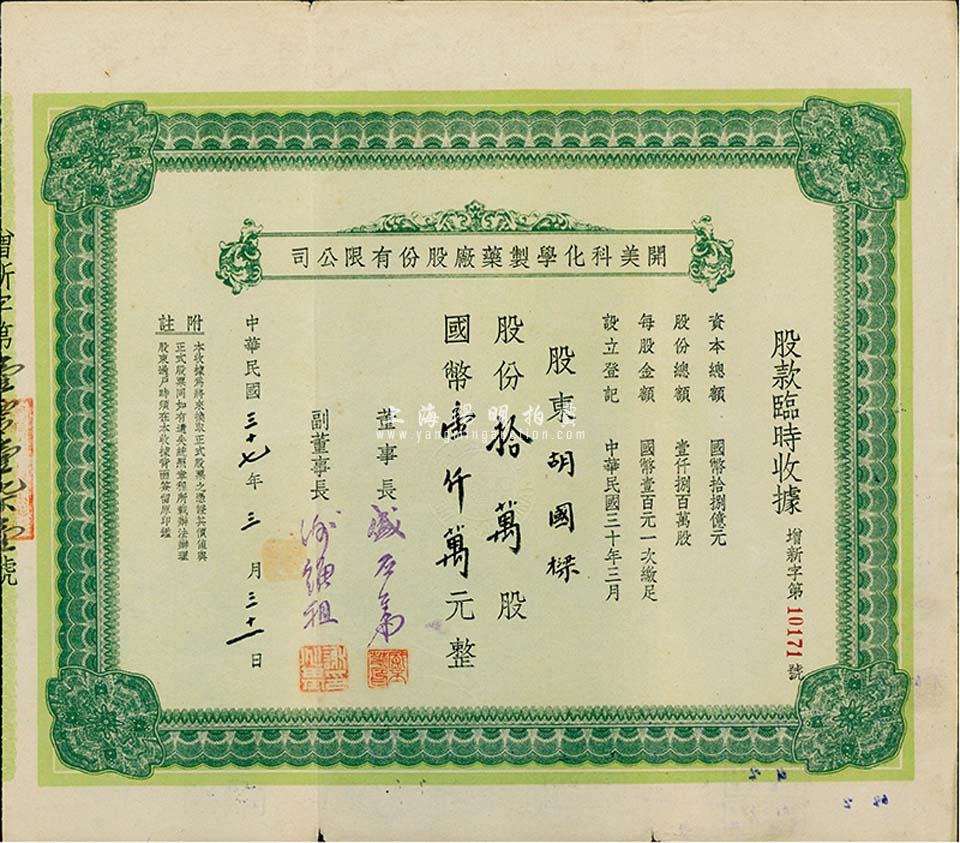 開美科化學製藥廠股份有限公司
股款臨時收據
增新字第10171號
資本總額 國幣拾捌億元
股份總額 壹仟捌百萬股
每股金額 國幣壹百元一次繳足
設立登記 中華民國三十年三月
股東胡國樑
股份拾萬股
國幣壹仟萬元整
董事長
副董事長
中華民國三十七年三月三十一日
附註
本收據爲將來換取正式股票之憑證其價值與
正式股票同如有遺失統照章程所載辦法辦理
股東過戶時須在本收據背面簽留原印鑑
增新字第壹零壹柒壹號
上海陽明拍賣
www.yangmingauction.com